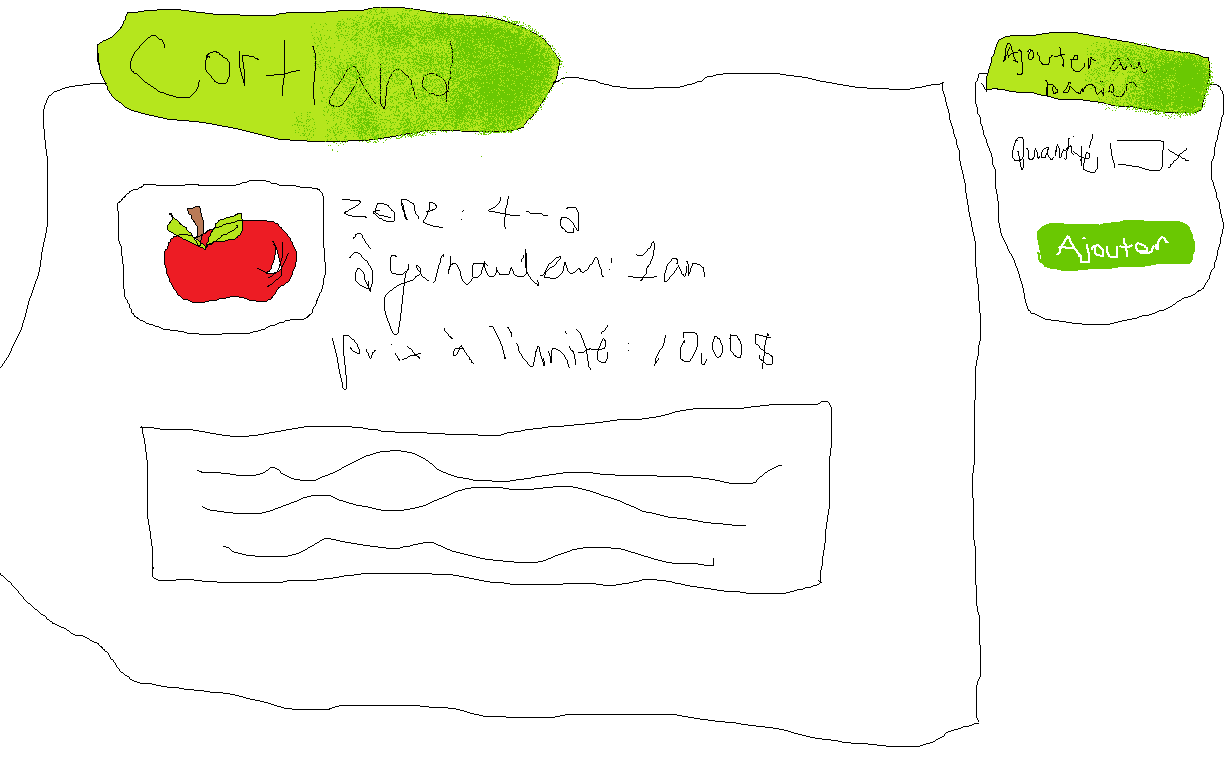 Cortland
zone: 4-a
âge/hauteur: 1 an
prix à l'unité: 10,00$
Ajouter au
panier
Quantité,
Ajouter